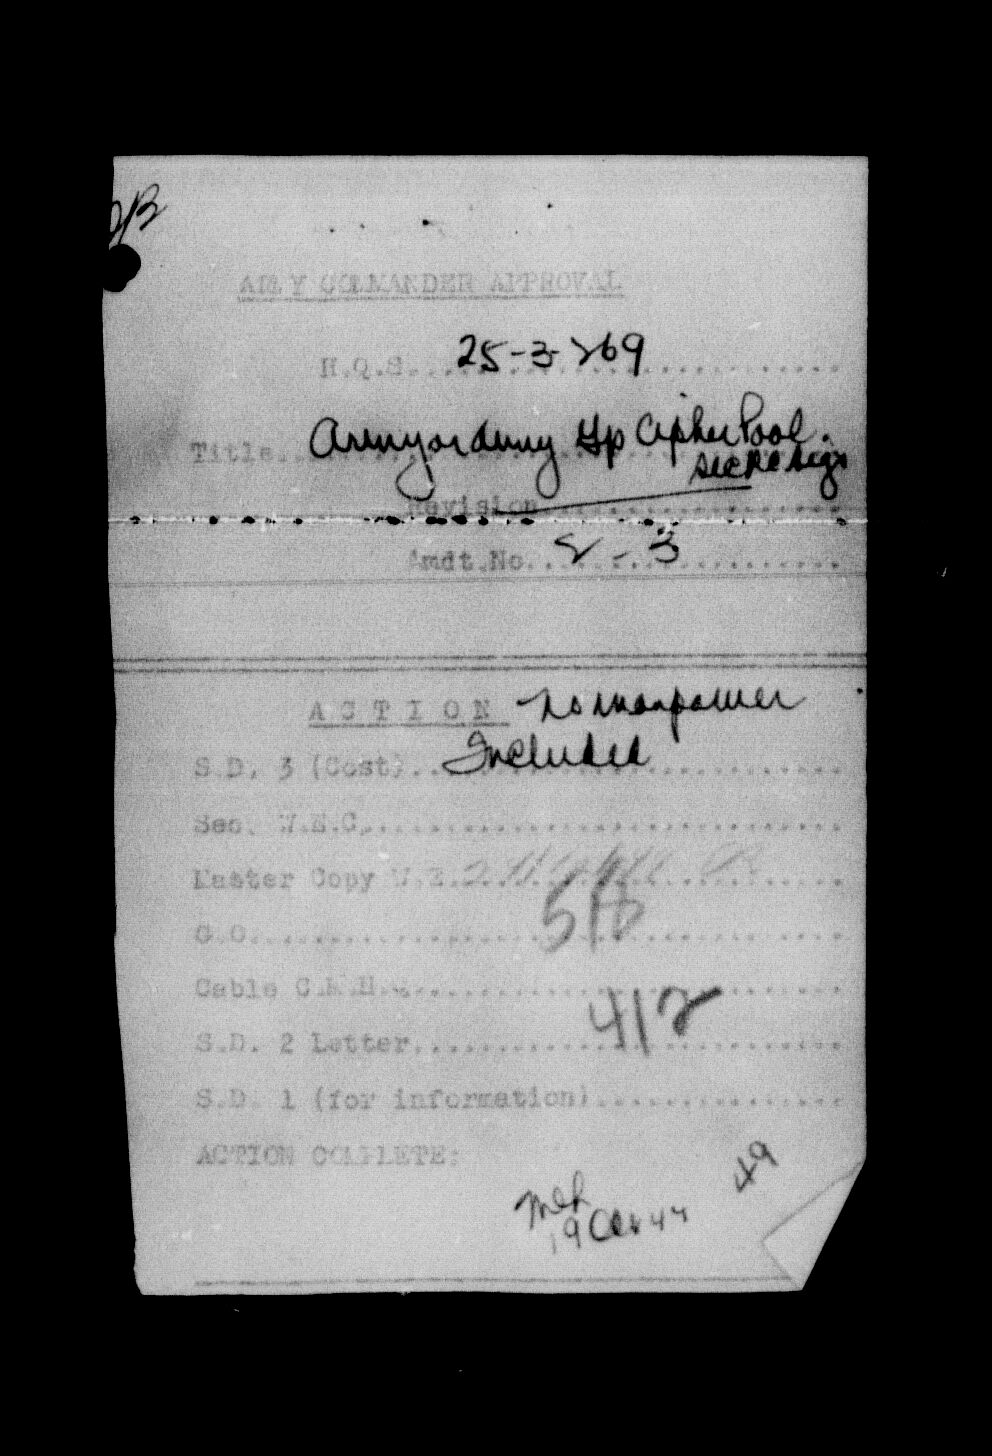 ARMY COMMANDER APPROVAL
H.Q.S. 25-3-769
Title Army or Army Gp Cipher Pool.
Revision
Amdt.No. 2-3
ACTION No manpower
Included
S.D. 3 (Cost)
Sec. W.E.C.
Master Copy W.E.
518
G.O.
Cable C.M.H.
412
S.D. 2 Letter
S.D. 1 (for information)
ACTION COMPLETE:
49
19 Oct 44